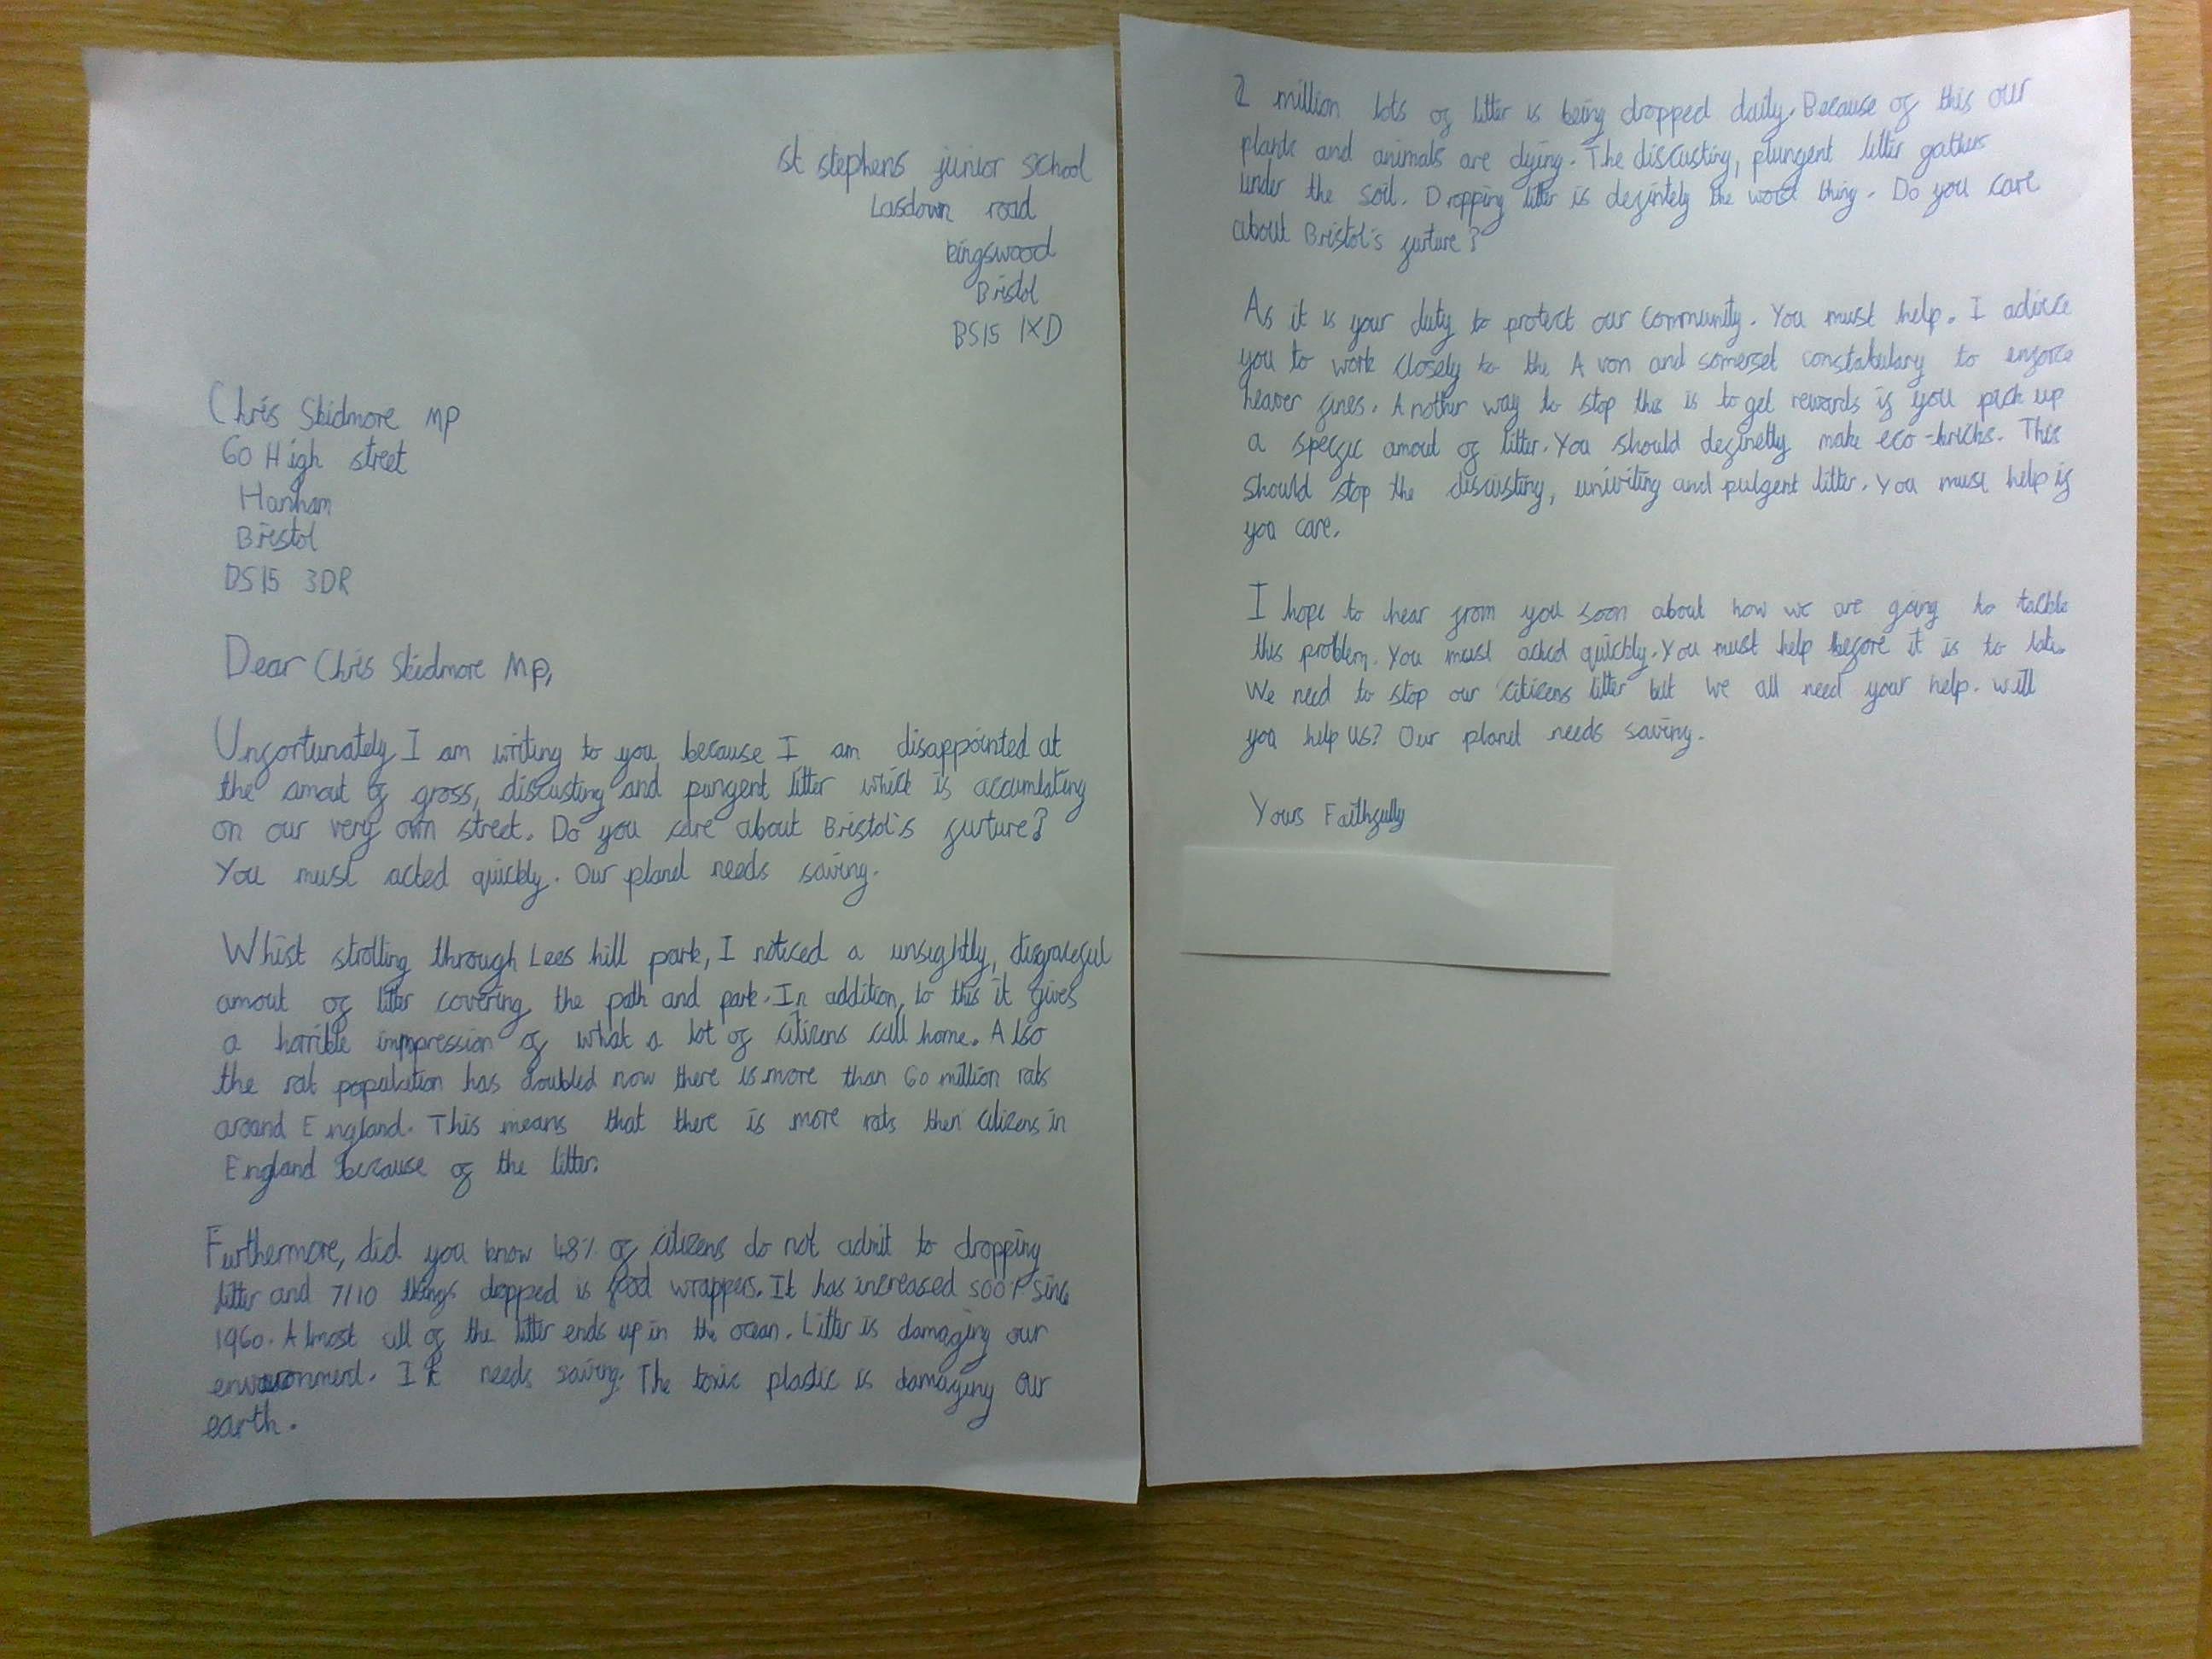 st stephens junior school
Lasdown road
kingswood
Bristol
BS15 1XD
Chris Skidmore MP
60 High street
Hanham
Bristol
DS15 3DR
Dear Chris Skidmore Mp,
Unfortunately I am writing to you because I am disappointed at
the amout of gross, discusting and pungent litter which is accumlating
on our very own street. Do you care about Bristol's furture?
You must acted quickly. Our planet needs saving.
Whist strolling through Lees hill park, I noticed a unsightly, disgraceful
amout of litter covering the path and park. In addition, to this it gives
a horrible immpression of what a lot of citizens call home. Also
the rat population has doubled now there is more than 60 million rats
around England. This means that there is more rats then citizens in
England because of the litter.
Furthermore, did you know 48% of citizens do not admit to dropping
litter and 7/10 things dropped is food wrappers. It has increased 500% sinc
1960. Almost all of the litter ends up in the ocean. Litter is damaging our
It needs saving. The toxic plastic is damaging our
earth.
2 million lots of litter is being dropped daily. Because of this our
plants and animals are dying. The discusting, plungent litter gathers
under the soil. Dropping litter is defintely the worst thing. Do you care
about Bristol's furture?
As it is your duty to protect our community. You must help. I adivce
you to work closely to the Avon and somerset constabulary to enforce
heaver fines. Another way to stop this is to get rewards if you pick up
a specfic amout of litter. You should definetly make eco-bricks. This
should stop the discusting, univiting and pulgent litter. You must help if
you care.
I hope to hear from you soon about how we are going to tackle
this problem. You must acted quickly. You must help before it is to late.
We need to stop our citizens litter but we all need your help. will
you help us? Our planet needs saving.
Yours Faithfully